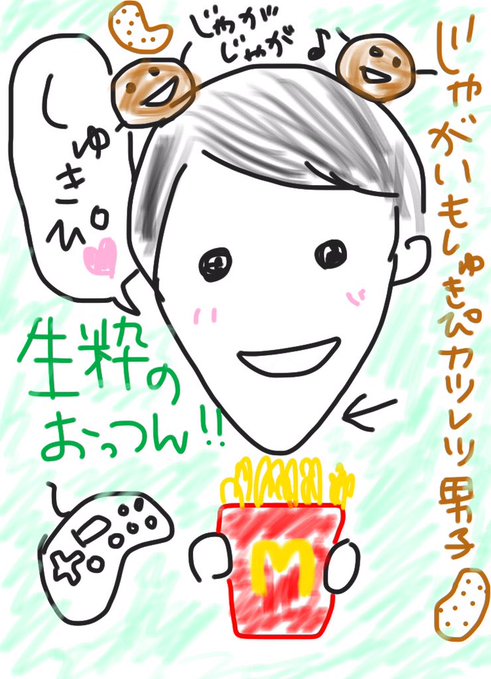 じゃがいもしゅきぴカツレツ男子
じゃが
じゃが
しゅきぴ
生粋の
おっつん!!
M